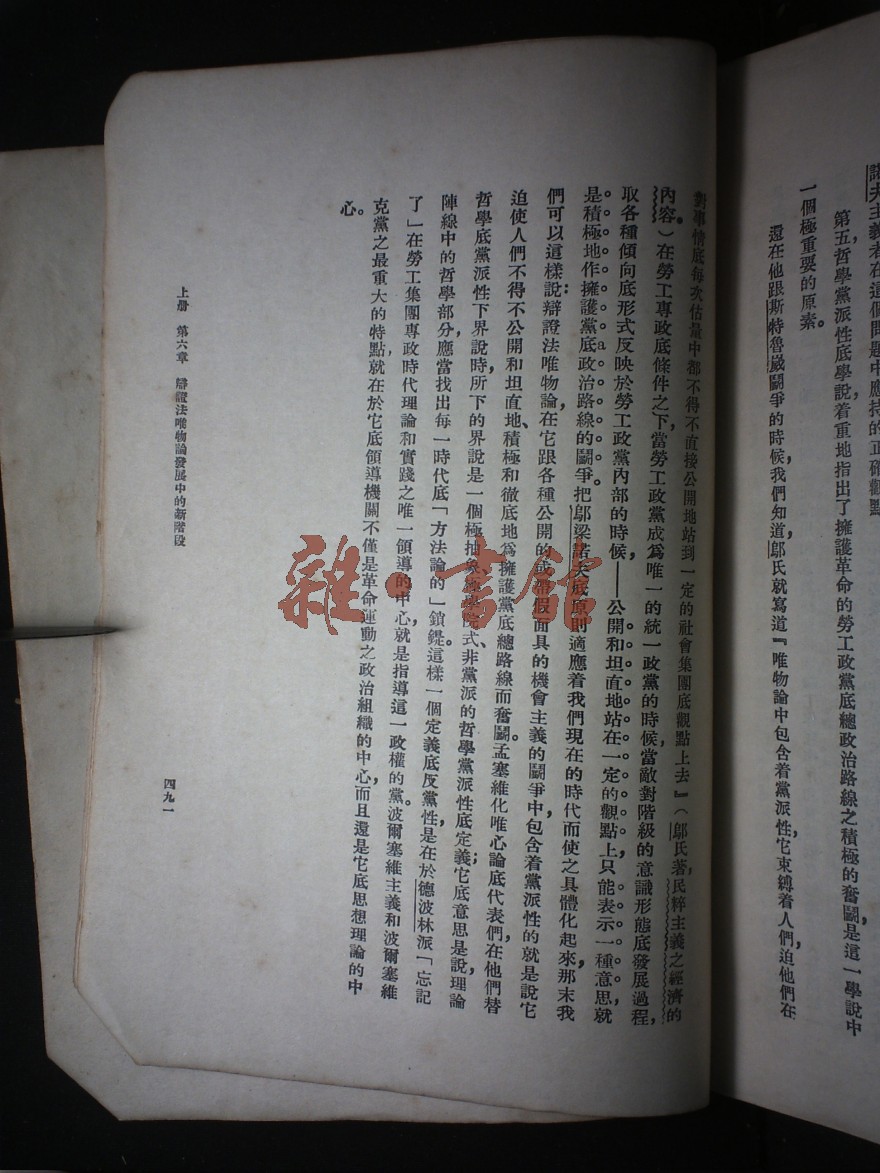 諾夫主義者在這個問題中應持的正確觀點
第五，哲學黨派性底學說着重地指出了擁護革命的勞工政黨底總政治路線之積極的奮鬭，是這一學說中
一個極重要的原素。
還在他跟斯特魯崴鬭爭的時候，我們知道，鄔氏就寫道：『唯物論中包含着黨派性，它束縛着人們，迫他們在
對事情底每次估量中都不得不直接公開地站到一定的社會集團底觀點上去』（鄔氏著，民粹主義之經濟的
內容。）在勞工專政底條件之下，當勞工政黨成爲唯一的統一政黨的時候，當敵對階級的意識形態底發展過程，
取各種傾向底形式反映於勞工政黨內部的時候——公開和坦直地站在一定的觀點上，只能表示一種意思，就
是積極地作擁護黨底政治路線的鬭爭。把鄔梁諾夫底原則適應着我們現在的時代而使之具體化起來，那末我
們可以這樣說：辯證法唯物論在它跟各種公開的或帶假面具的機會主義的鬭爭中包含着黨派性的，就是說它
迫使人們不得不公開和坦直地、積極和徹底地爲擁護黨底總路線而奮鬭。孟塞維化唯心論底代表們，在他們替
哲學底黨派性下界說時，所下的界說是一個極抽象、極學院式、非黨派的哲學黨派性底定義；它底意思是說，理論
陣線中的哲學部分，應當找出每一時代底「方法論的」鎖鍉。這樣一個定義底反黨性，是在於德波林派「忘記
了」在勞工集團專政時代理論和實踐之唯一領導的中心，就是指導這一政權的黨。波爾塞維主義和波爾塞維
克黨之最重大的特點，就在於它底領導機關不僅是革命運動之政治組織的中心，而且還是它底思想理論的中
心。
上册　第六章　辯證法唯物論發展中的新階段
四九一
雜·書館